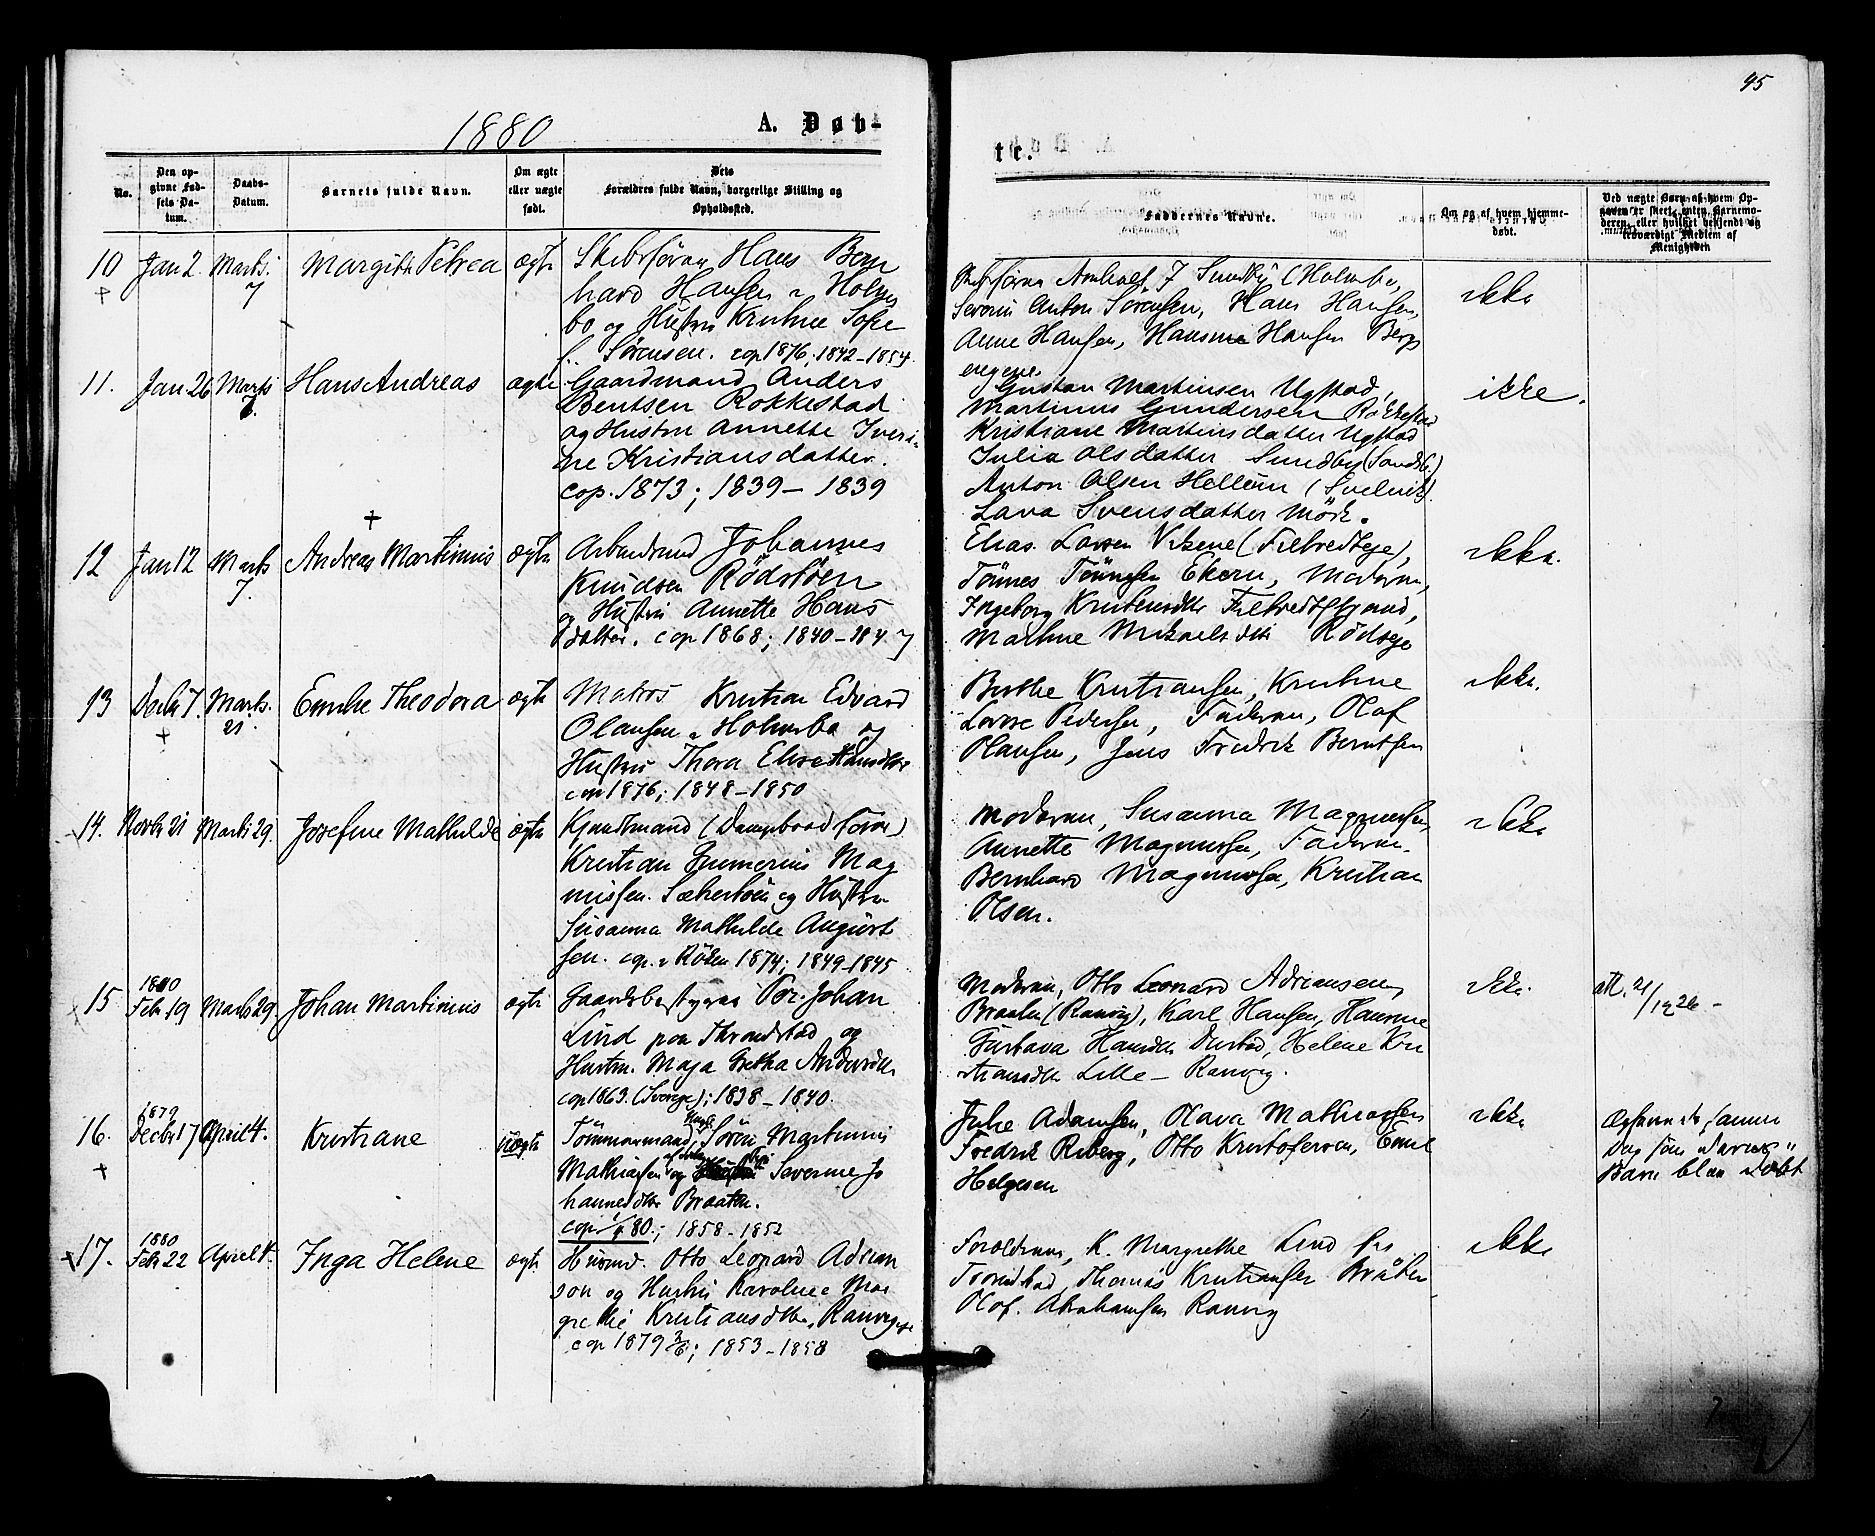 45
1880
A. Døb-
te.
No.
Den op-
givne Fød-
sels Da-
tum.
Daabs-
Datum.
Barnets fulde Navn.
Om ægte
eller uægte
født.
Dets
Forældres fulde Navn, borgerlige Stilling og
Opholdssted.
Faddernes Navne.
Om og af hvem hjemme-
døbt.
Ved uægte Børn af hvem Op-
gaven er skeet, enten Barnemo-
deren, eller hvilket bekjendt og
troværdigt Medlem af
Menigheden
10 Jan 2. Marts 7 Margith Petrea ægte
Skibsförer Hans Bern
hard Hansen i Holms
bo og Hustru Kristine Sofie
f. Sørensen. cop 1876; 1842-1854.
Sundby (Holmsbo,
Severin Anton Sörensen, Hans Hansen,
Anne Hansen, Hansine Hansen Bergs
engene.
ikke
11. Jan 26 Marts 7. Hans Andreas ægte
Gaardmand Anders
Bentsen Rokkestad
og Hustru Annette Iveri-
ne Kristiansdatter.
cop. 1873; 1839 – 1839
Gustav Martinsen Ugstad,
Martinus Gundersen Rokkestad
Kristiane Martinsdatter Ugstad
Julia Olsdatter Sundby (Sandsb.)
Anton Olsen Hellum (Svelvik).
Lava Svensdatter Mörk.
ikke.
12 Jan 12 Marts 7. Andreas Martinius ægte
Arbeidsmd Johannes
Knudsen Rödstöen
og Hustru Annette Hans
datter. cop 1868; 1840-1847
Elias Larsen Viksene (Filtvedteje),
Tönnes Tönnesen Ekern, Moderen,
Ingeborg Kristensdtr Filtvedt
Martine Mikaelsdtr Rödseje
ikke.
13 Decbr 7. Marts. 21. Emilie Theodora ægte
Matros Kristian Edvard
Olausen i Holmsbo og
Hustru Thora Elise Hansdtr
cop 1876; 1848-1850
Berthe Kristiansen, Kristine
Lovise Pedersen, Faderen, Olaf
Olausen, Jens Fredrik Berntsen
ikke.
14. Novbr 21 Marts 29. Josefine Mathilde ægte
(Dampbaadförer)
Kristian Gumerius Mag
nussen. Sætherstöen og Hustru
Susanna Mathilde August
sen. cop. i Röken 1874; 1849-1845
Moderen, Susanna Magnussen,
Annette Magnussen, Faderen,
Bernhard Magnussen, Kristian
Olsen.
ikke
15 1880 Febr 19 Marts 29. Johan Martinius ægte
Gaardsbestyrer Per Johan
Lind paa Throndstad og
Hustru Maja Gretha Andersdtr
cop 1863. (Sverige); 1838 – 1840.
Moderen, Otto Leonard Adriansen,
Braaten (Ramvig), Karl Hansen, Hansine
Gustava Hansdtr Dustad, Helene Kri
stiansdtr Lille – Ramvig.
ikke.
att. 21/1926 –
16. 1879 Decbr 17 April 4. Kristiane uægte
Tömmermand, Ungk. Sören Martinius
Mathiasen og Pige Severine Jo
hannesdtr Braaten.
cop 80.; 1858-1852
Julie Adamsen, Olava Mathiasen
Fredrik Riberg, Otto Kristofersen, Emil
Helgesen
ikke.
samme
Dag som
Barn blev döbt
17. 1880 Febr 22 April 4. Inga Helene ægte
Husmd. Otto Leopard Adrian
sen og Hustru Karoline Mar
grethe Kristiansdtr, Ramvigeje
cop 1879; 1853-1858
Forældrene, K. Margrethe Lind fra
Tronstad, Thomas Kristiansen Bråten
Olof. Abrahamsen Ramvig
ikke